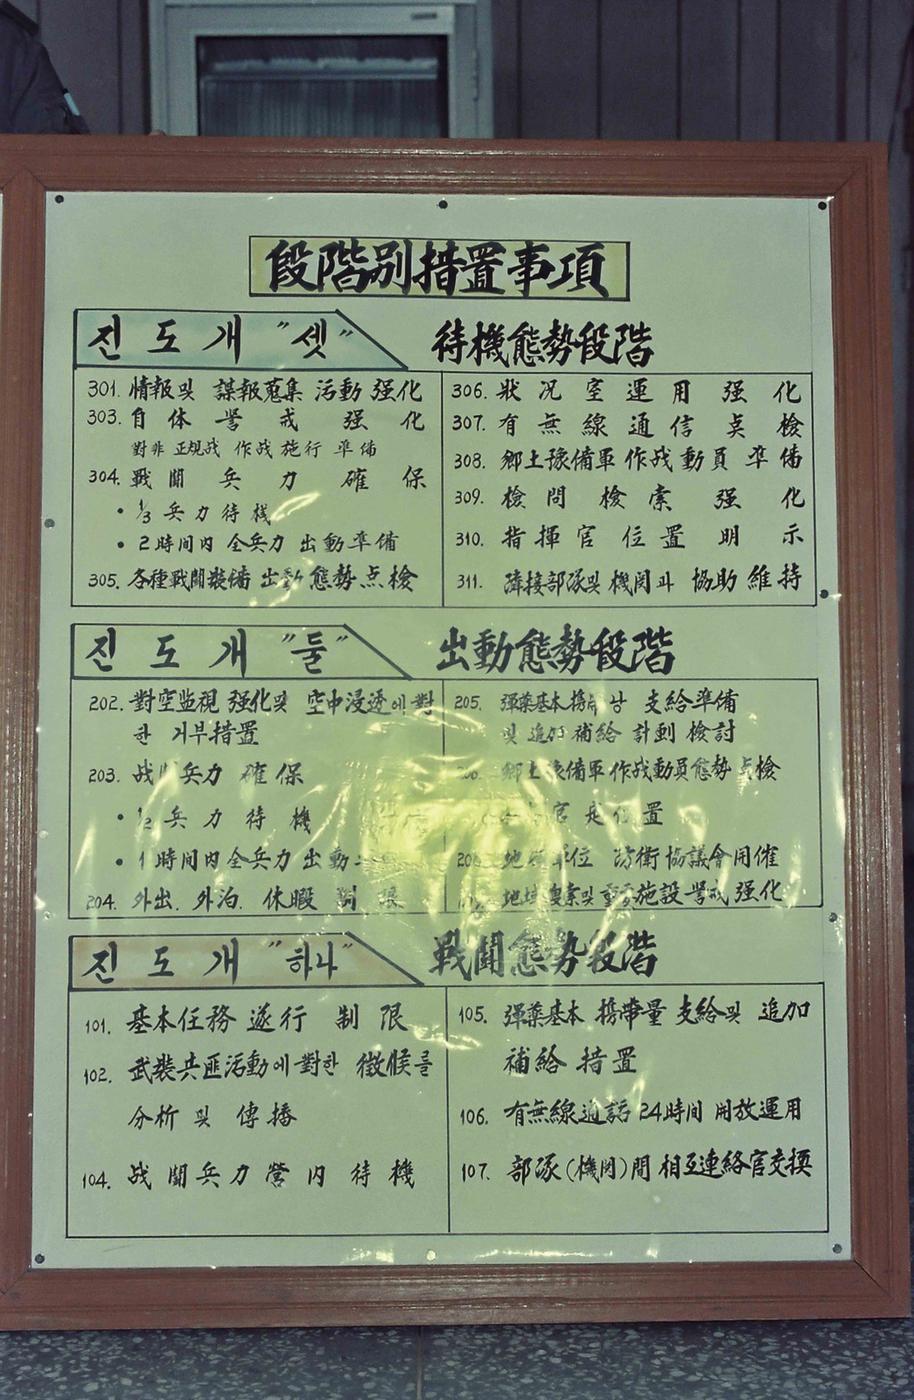 段階別措置事項
진도개 "셋" 待機態勢段階
301. 情報및 諜報蒐集 活動 强化
303. 自体 警戒 强化
對非 正規战 作战 施行 準備
304. 戰鬪 兵力 確保
• 1/3 兵力待機
• 2時間內 全兵力 出動準備
305. 各種戰鬪裝備 出動態勢点檢
306. 狀况室運用 强化
307. 有無線通信 点檢
308. 鄕土豫備軍 作战動員 準備
309. 檢問 檢索 强化
310. 指揮官 位置 明示
311. 隣接部隊및 機関과 協助維持
진도개 "둘" 出動態勢段階
202. 對空监視 强化및 空中浸透에 對
한 거부措置
203. 战鬪兵力 確保
• 1/2 兵力待機
• 1時間內 全兵力 出動
204. 外出. 外泊. 休暇
205. 彈薬基本 支給準備
및 追加補給 計劃 檢討
鄕土豫備軍 作战動員態勢 点檢
位置
地域 防衛協議會開催
地域 및 重要施設 警戒 强化
진도개 "하나" 戰鬪態勢段階
101. 基本任務 遂行 制限
102. 武裝共匪活動에 對한 徵候를
分析 및 傳播
104. 战鬪兵力 營内 待機
105. 彈薬基本 携帶量 支給및 追加
補給 措置
106. 有無線通話 24時間 開放運用
107. 部隊(機関)間 相互連絡官交換